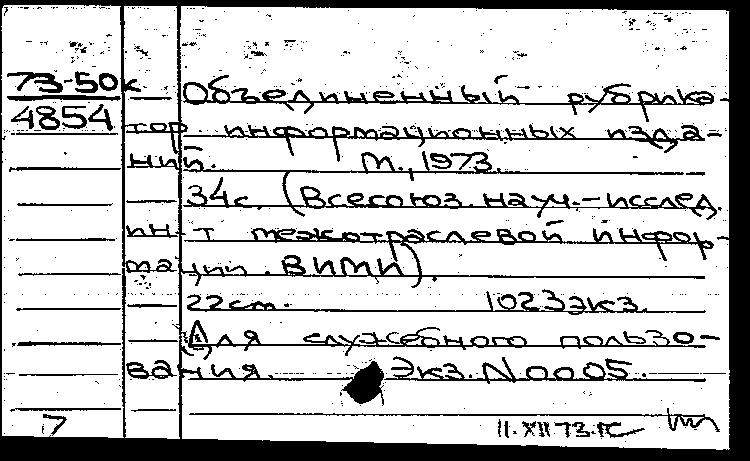 73-50к
4854
Объединенный рубрика-
тор информационных изда-
ний. М., 1973.
34с. (Всесоюз. науч.-исслед.
ин-т межотраслевой инфор-
мации. ВИМИ).
22см. 1023экз.
Для служебного пользо-
вания. Экз. N0005.
11.XII 73.